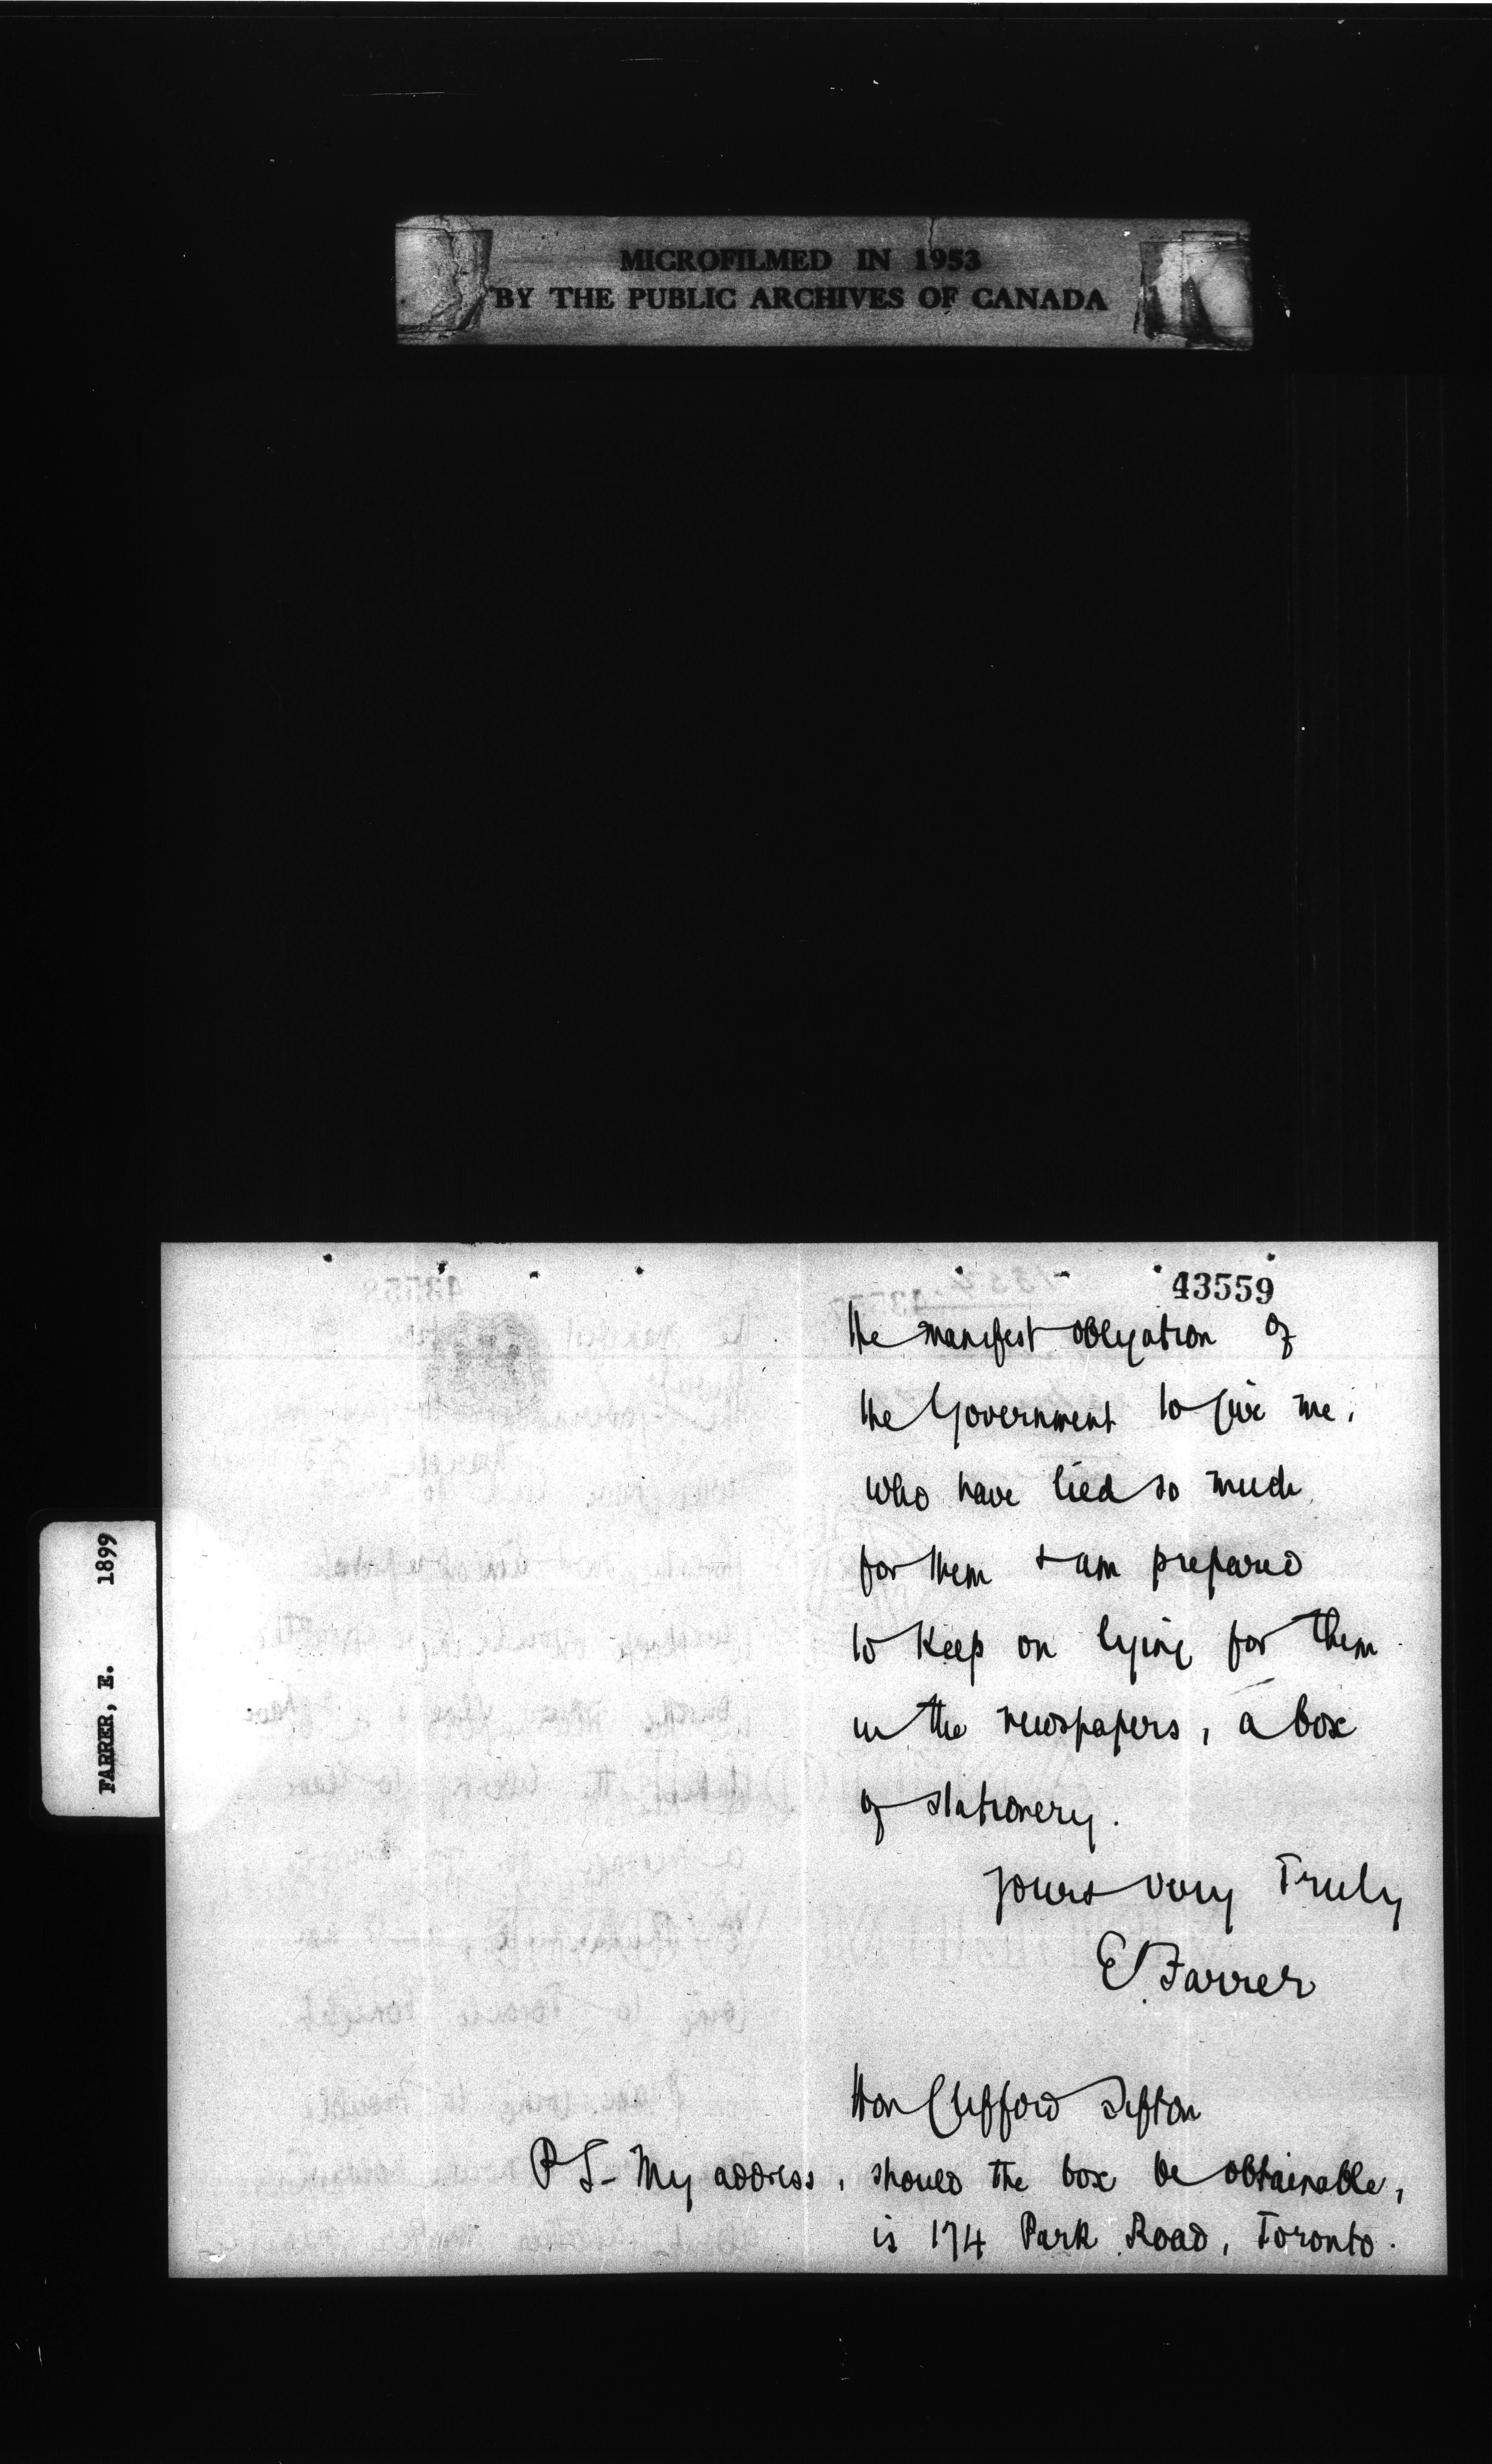 MICROFILMED IN 1953
BY THE PUBLIC ARCHIVES OF CANADA
FARRER, E. 1899
43559
the manifest obligation of
the Government to give me,
who have lied so much
for them & am prepared
to keep on lying for them
in the newspapers, a box
of stationery.
yours very Truly
E. Farrer
Hon Clifford Sifton
P S - My address, should the box be obtainable,
is 174 Park Road, Toronto.